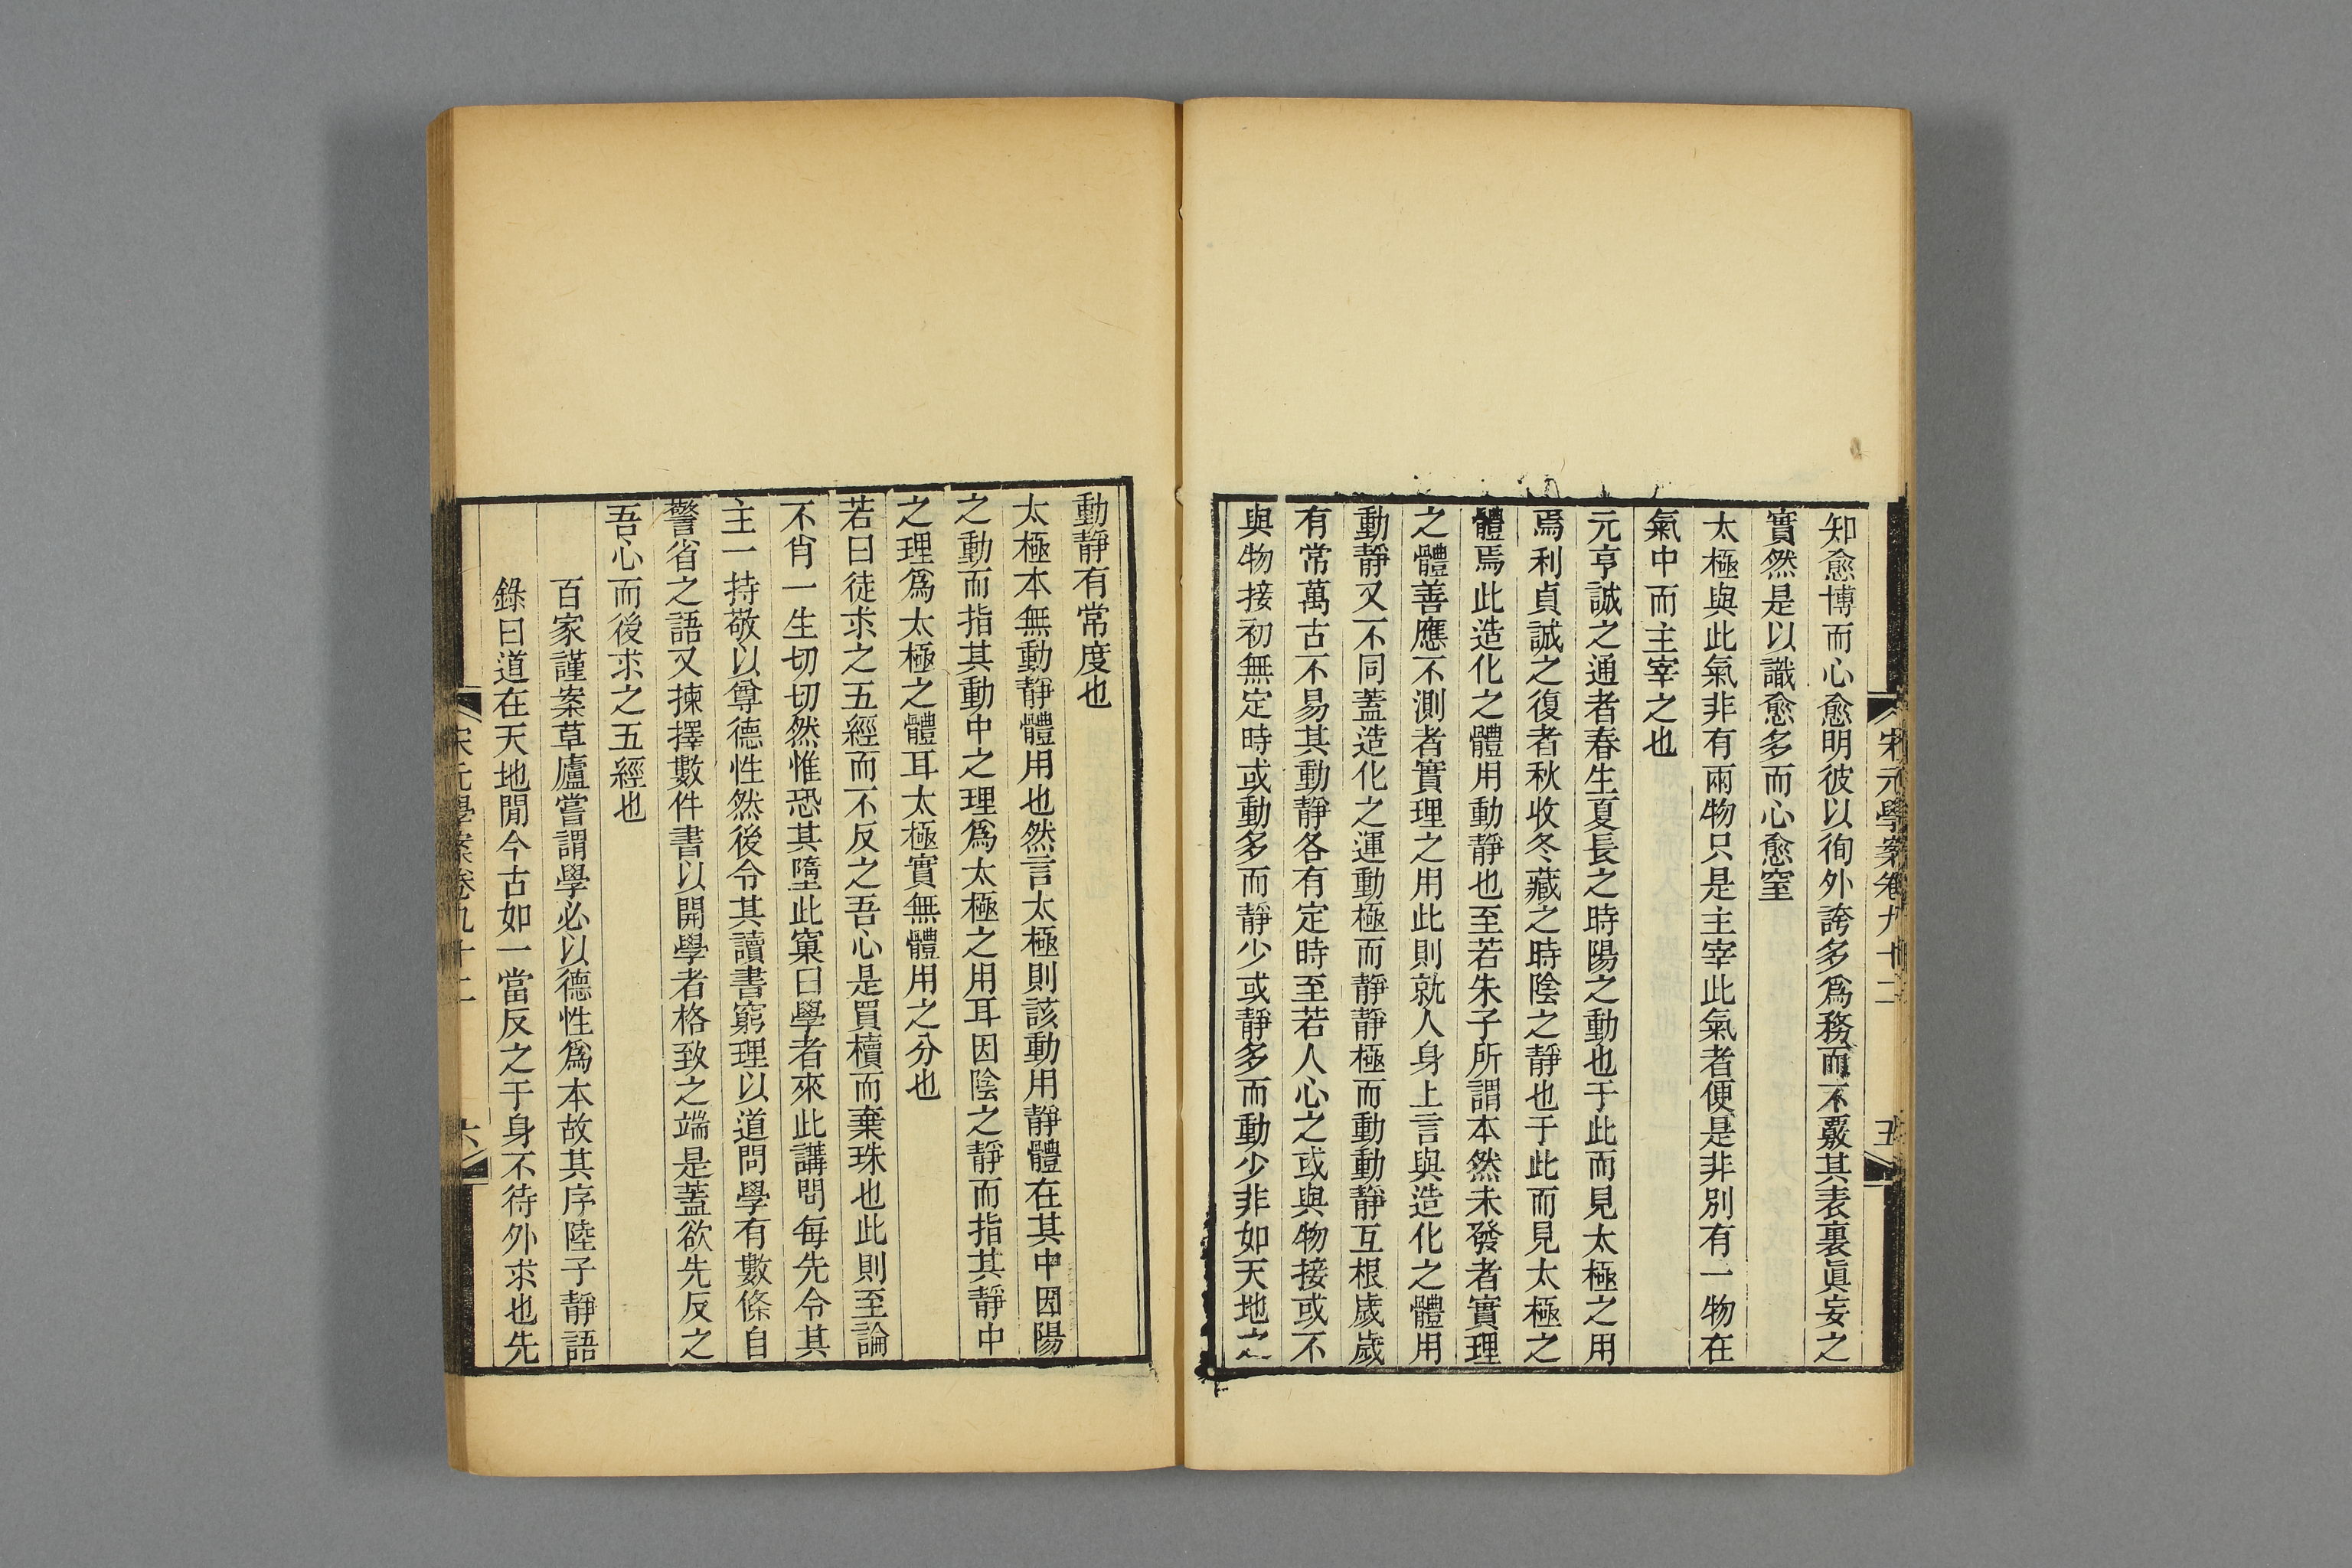 宋元學案卷九十二
五
知愈博而心愈明彼以徇外誇多爲務而不覈其表裏眞妄之
實然是以識愈多而心愈窒
太極與此氣非有兩物只是主宰此氣者便是非別有一物在
氣中而主宰之也
元亨誠之通者春生夏長之時陽之動也于此而見太極之用
焉利貞誠之復者秋收冬藏之時陰之靜也于此而見太極之
體焉此造化之體用動靜也至若朱子所謂本然未發者實理
之體善應不測者實理之用此則就人身上言與造化之體用
動靜又不同蓋造化之運動極而靜靜極而動動靜互根歲歲
有常萬古不易其動靜各有定時至若人心之或與物接或不
與物接初無定時或動多而靜少或靜多而動少非如天地之
動靜有常度也
太極本無動靜體用也然言太極則該動用靜體在其中因陽
之動而指其動中之理爲太極之用耳因陰之靜而指其靜中
之理爲太極之體耳太極實無體用之分也
若曰徒求之五經而不反之吾心是買櫝而棄珠也此則至論
不肖一生切切然惟恐其墮此窠臼學者來此講問每先令其
主一持敬以尊德性然後令其讀書窮理以道問學有數條自
警省之語又揀擇數件書以開學者格致之端是蓋欲先反之
吾心而後求之五經也
百家謹案草廬嘗謂學必以德性爲本故其序陸子靜語
錄曰道在天地閒今古如一當反之于身不待外求也先
宋元學案卷九十二
六